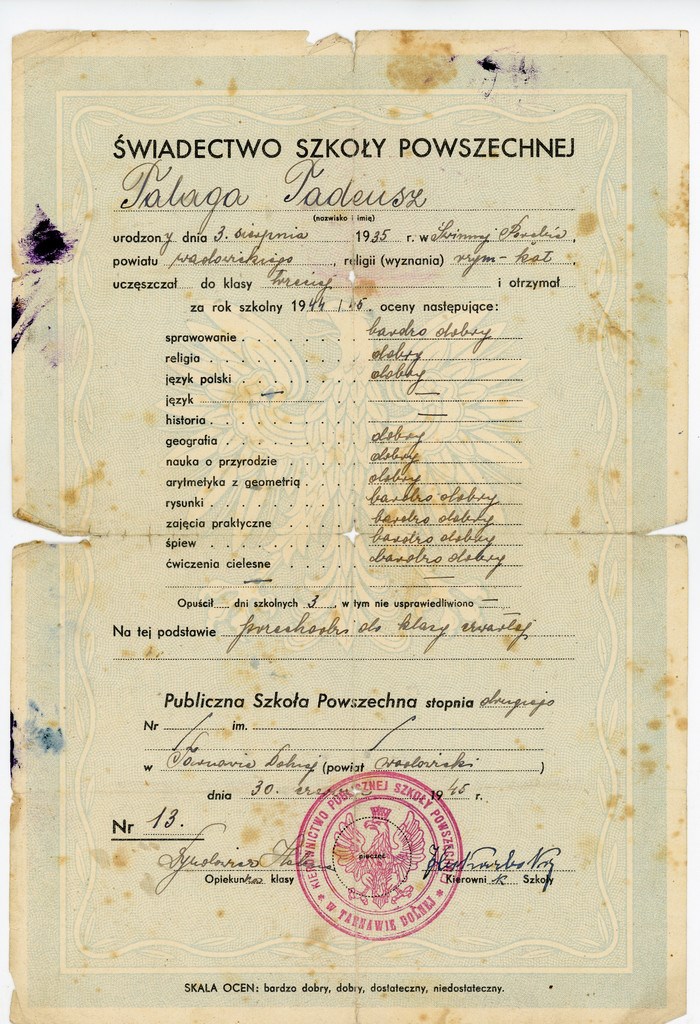 ŚWIADECTWO SZKOŁY POWSZECHNEJ
Pałaga Tadeusz
(nazwisko i imię)
urodzony dnia 3. sierpnia 1935 r. w Świnnej Porębie,
powiatu wadowickiego, religii (wyznania) rzym-kat,
uczęszczał do klasy trzeciej i otrzymał
za rok szkolny 1944/45. oceny następujące:
sprawowanie bardzo dobry
religia dobry
język polski dobry
język — —
historia —
geografia dobry
nauka o przyrodzie dobry
arytmetyka z geometrią dobry
rysunki bardzo dobry
zajęcia praktyczne bardzo dobry
śpiew bardzo dobry
ćwiczenia cielesne bardzo dobry
— —
Opuścił dni szkolnych 3, w tym nie usprawiedliwiono —
Na tej podstawie przechodzi do klasy czwartej
Publiczna Szkoła Powszechna stopnia drugiego
Nr / im. /
w Tarnawie Dolnej (powiat wadowicki)
dnia 30. czerwca 1945 r.
Nr 13.
KIEROWNICTWO PUBLICZNEJ SZKOŁY POWSZECHNEJ
W TARNAWIE DOLNEJ
pieczęć
Opiekun klasy Kierownik Szkoły
SKALA OCEN: bardzo dobry, dobry, dostateczny, niedostateczny.